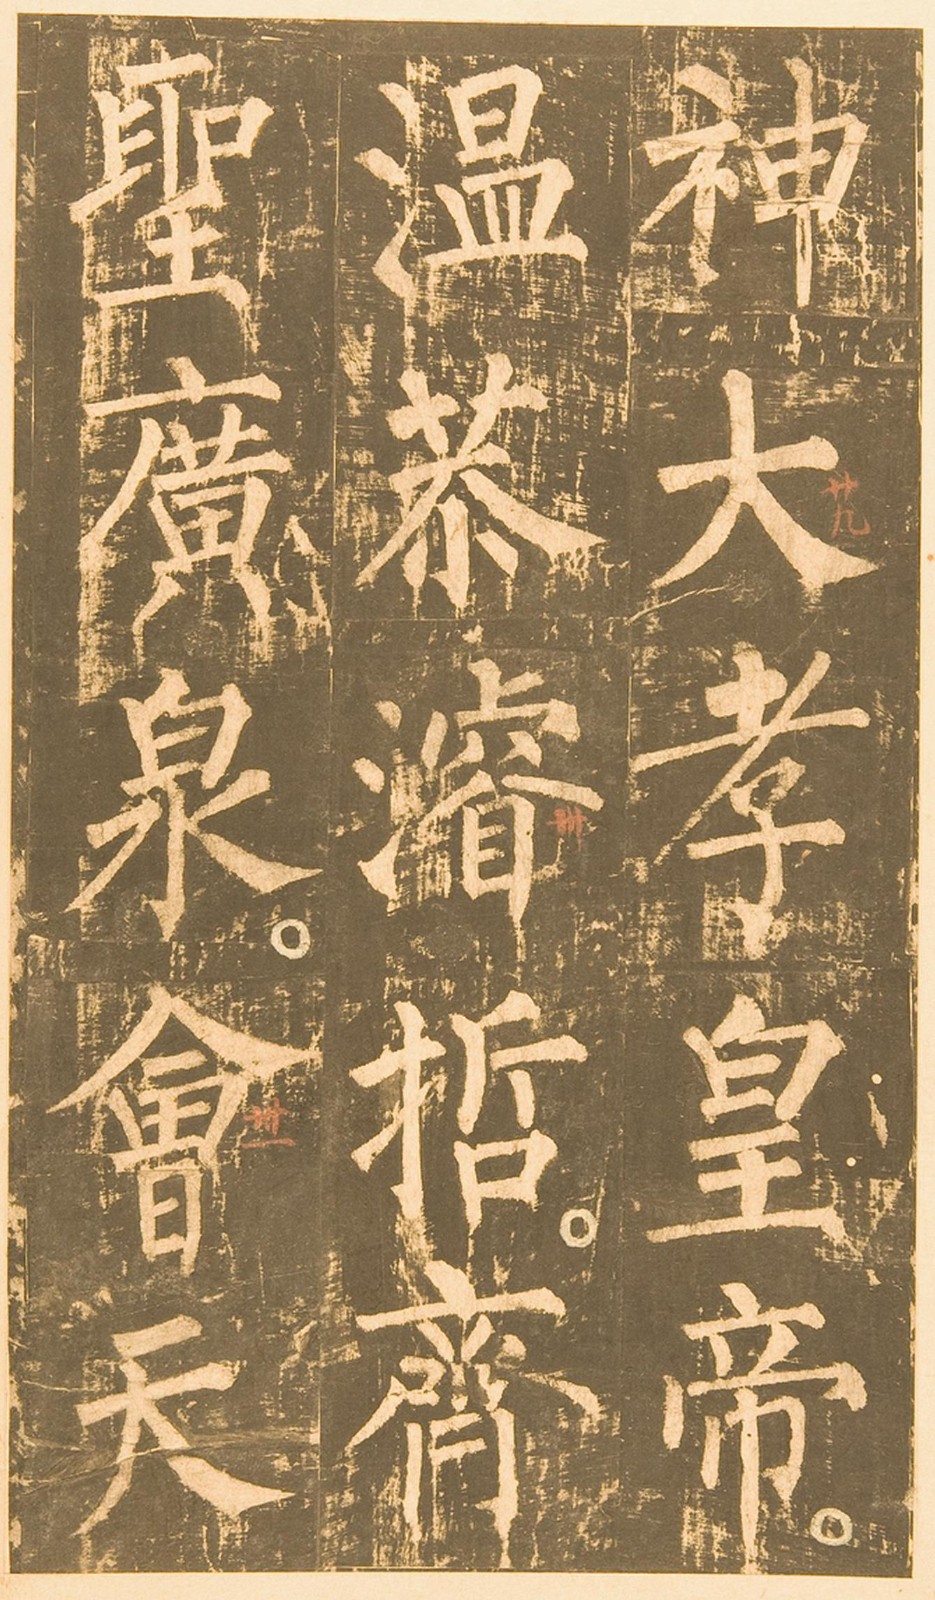 神大孝皇帝。
廿九
温恭濬哲。齊
卅
聖廣泉。會天
卅一